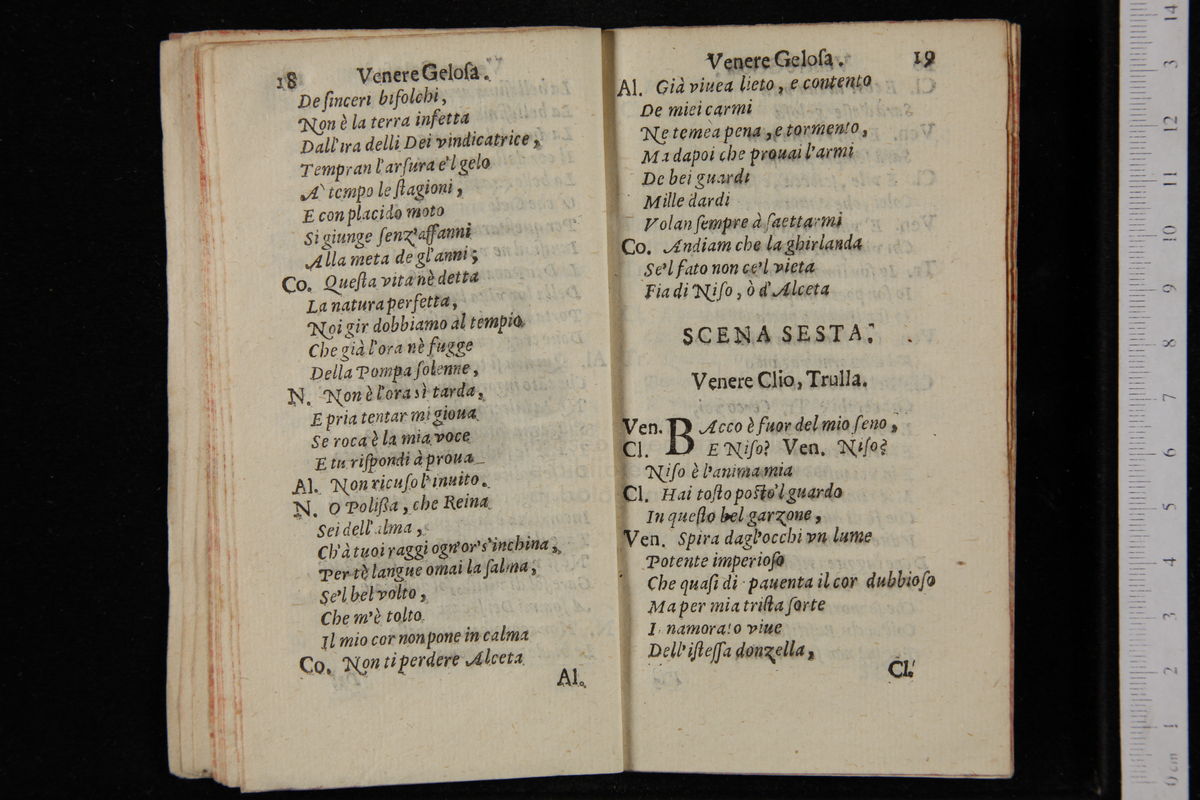 18 Venere Geloſa.
De ſinceri bifolchi,
Non è la terra infetta
Dall'ira delli Dei vindicatrice,
Tempran l'arſura e'l gelo
A' tempo le ſtagioni,
E con placido moto
Si giunge ſenz'affanni
Alla meta de gl'anni;
Co. Queſta vita nè detta
La natura perfetta,
Noi gir dobbiamo al tempio
Che già l'ora nè fugge
Della Pompa ſolenne,
N. Non è l'ora sì tarda,
E pria tentar mi gioua
Se roca è la mia voce
E tu riſpondi à proua
Al. Non ricuſo l'inuito.
N. O Polißa, che Reina
Sei dell'alma,
Ch'à tuoi raggi ogn'or's'inchina,
Per tè langue omai la ſalma,
Se'l bel volto,
Che m'è tolto
Il mio cor non pone in calma
Co. Non ti perdere Alceta
Al.
Venere Geloſa. 19
Al. Già viuea lieto, e contento
De miei carmi
Ne temèa pena, e tormento,
Ma dapoi che prouai l'armi
De bei guardi
Mille dardi
Volan ſempre à ſaettarmi
Co. Andiam che la ghirlanda
Se'l fato non ce'l vieta
Fia di Niſo, ò d'Alceta
SCENA SESTA.
Venere Clio, Trulla.
Ven. BAcco è fuor del mio ſeno,
Cl. E Niſo? Ven. Niſo?
Niſo è l'anima mia
Cl. Hai toſto poſto'l guardo
In queſto bel garzone,
Ven. Spira dagl'occhi vn lume
Potente imperioſo
Che quaſi di pauenta il cor dubbioſo
Ma per mia triſta ſorte
Inamorato viue
Dell'iſteſſa donzella,
Cl.
14
3
12
11
10
9
8
7
6
5
4
3
2
1
0 cm